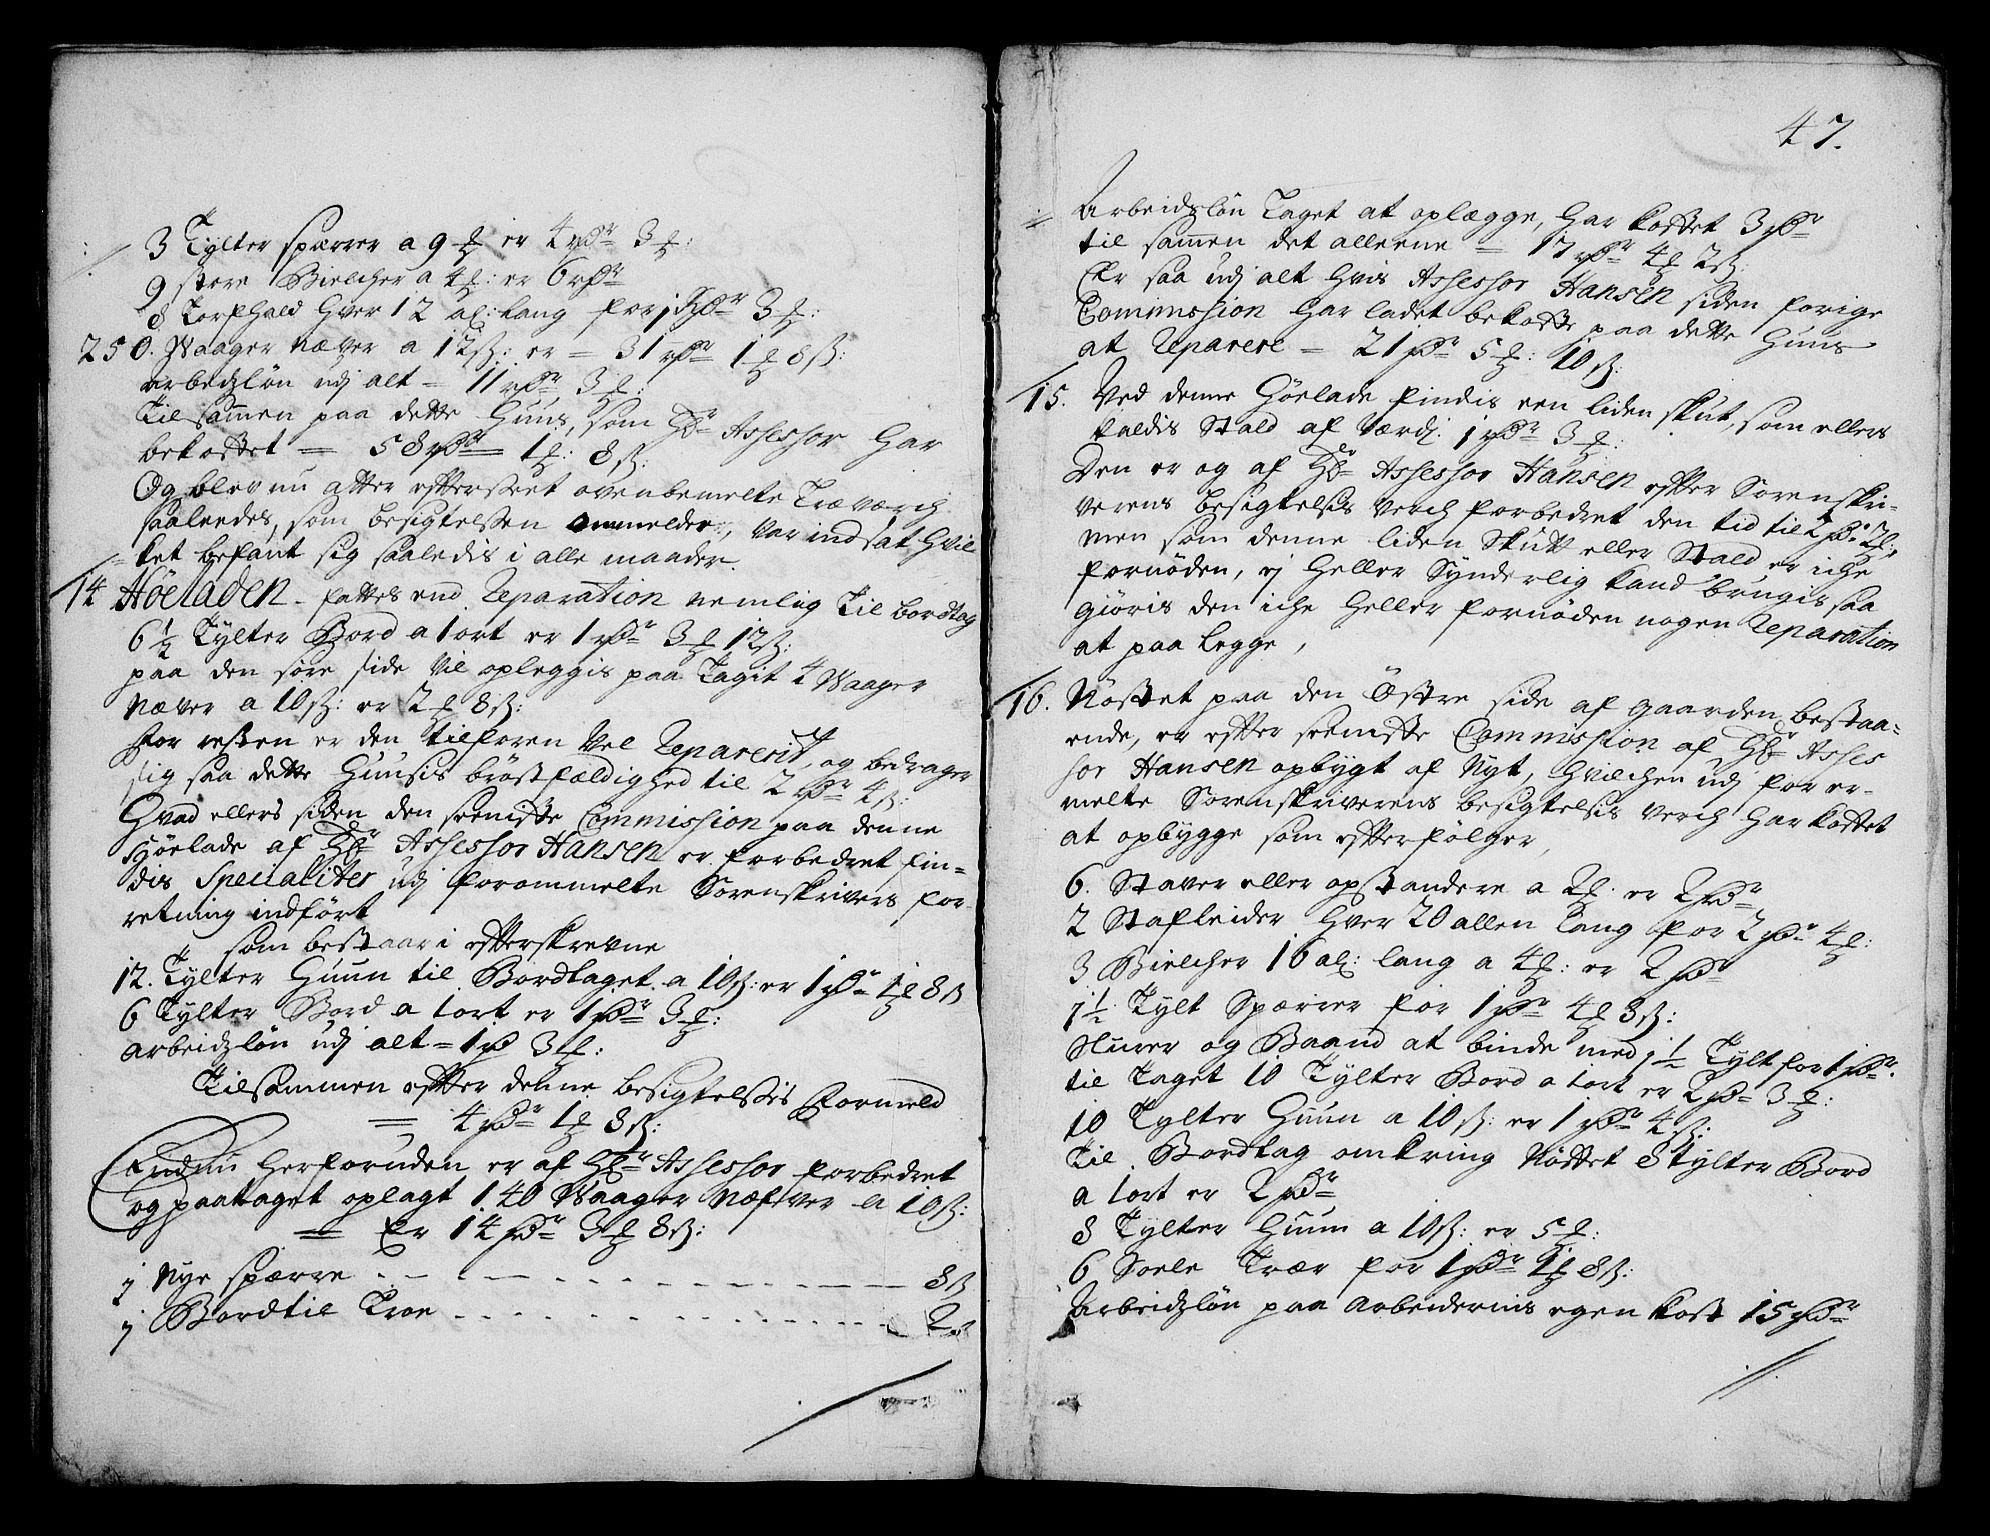 3 Tylter sparrer a 9 ₰ er 4 rdr 3 ₰:
9 store Bielcher a 4 ₰: er 6 rdr
8 Torfhald hver 12 al: lang for 1 rdr 3 ₰:
250. Waager Næver a 12 ß: er = 31 rdr 1 ₰ 8 ß:
arbeidzløn udj alt = 11 rdr 3 ₰:
Tilsamen paa dette Huus, som Hr Assessor har
bekostet = 58 rdr 1 ₰: 8 ß:
Og blev nu atter efterseet ovenbemelte Træværch
saaledes, som besigtelsen ommelder, var indsat, hvil
ket befant sig saaledis i alle maader.
14 Höeladen. fattes end Reparation nemlig Til bordtag
6 1/2 Tylter Bord a 1 ort er 1 rdr 3 ₰ 12 ß:
paa den søre side vil opleggis paa Tagit 4 Waager
Næver a 10 ß: er 2 ₰ 8 ß:
For resten er den tilforen vel Reparerit, og bedrager
sig saa dette Huusis brøstfældighed til 2 rdr 4 ß:
Hvad ellers siden den seeniste Commission paa denne
Høelade af Hr Assessor Hansen er forbedret fin=
dis Specialiter udj forommelte Sorenskrivers for
retning indført
som bestaar i efterskrevne
12. Tylter Huun til Bordtaget a 10 ß: er 1 rdr 1 ₰ 8 ß
6 Tylter Bord a 1 ort er 1 rdr 3 ₰:
Arbeidzløn udj alt = 1 rd 3 ₰:
Tilsammen efter denne besigtelsis Formeld
= 4 rdr 1 ₰ 8 ß:
Endnu herforuden er af Hr Assessor forbedret
og paataget oplagt 140 Waager Næfver a 10 ß:
= Er 14 rdr 3 ₰ 8 ß:
1 Nye sparre - - - 8 ß
1 Bord til Troe - - - 2
47.
Arbeidzløn Taget at oplægge, har kostet 3 rdr
til samen det alleene = 17 rdr 4 ₰ 2 ß:
Er saa udj alt hvis Assessor Hansen siden forige
Commission har ladet bekoste paa dette Huus
at Reparere = 21 rdr 5 ₰: 10 ß:
15. Ved denne Høelade findis een liden skut, som ellers
kaldis Stald af værdj: 1 rdr 3 ₰:
Den er og af Hr Assessor Hansen efter Sorenskri-
verens besigtelsis verch forbedret den tid til 2 rd: 2 ₰:
men som denne liden Skutt eller Stald er iche
fornøden, ej heller synderlig kand brugis saa
giøris den iche heller fornøden nogen Reparation
at paa legge,
16. Nøstet paa den Østre side af gaarden bestaa=
ende, er efter seeniste Commission af Hr Asses
sor Hansen opbygt af Nyt, hvilchen udj for er-
melte Sorenskriverens besigtelsis verch har kostet
at opbygge som efterfølger,
6. Staver eller opstandere a 2 ₰. er 2 rdr
2 Stafleider hver 20 allen lang for 2 rdr 4 ₰:
3 Bielcher 16 al: lang a 4 ₰: er 2 rdr
1 1/2 Tylt Sparrer for 1 rdr 4 ₰ 8 ß:
Slurer og Baand at binde med 1 1/2 Tylt for 1 rdr.
til Taget 10 Tylter Bord a 1 ort er 2 rdr 3 ₰:
10 Tylter Huun a 10 ß: er 1 rdr 4 ß:
Til Bordtag omkring Nøstet 8 tylter Bord
a 1 ort er 2 rdr
8 Tylter Huun a 10 ß: er 5 ₰:
6 Soele Træer for 1 rdr 1 ₰ 8 ß:
Arbeidzløn paa Arbeidernis egen kost 15 rdr